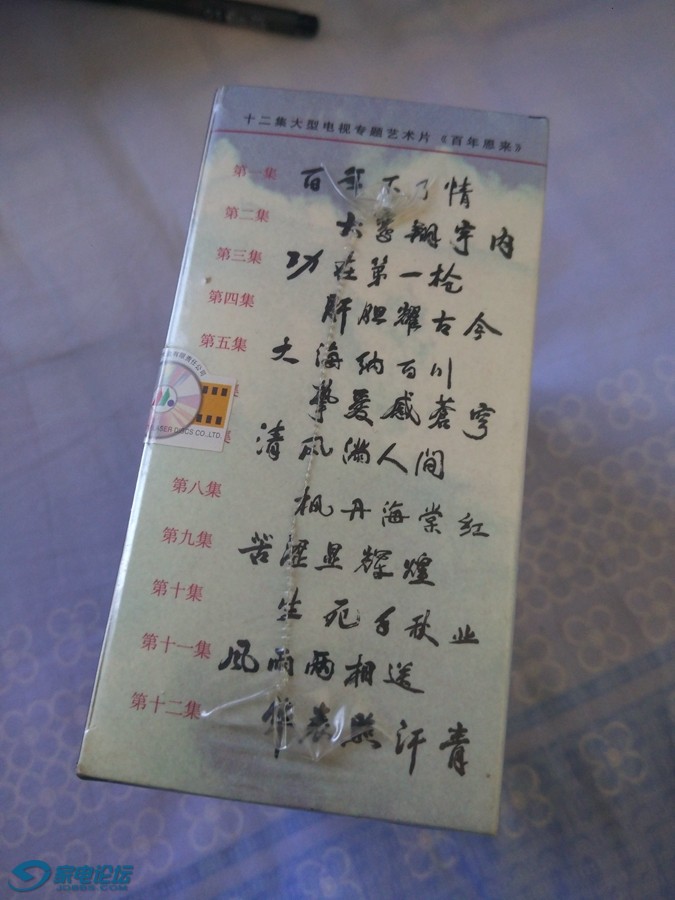 十二集大型电视专题艺术片《百年恩来》
第一集 百年不了情
第二集 大鸾翔宇内
第三集 功在第一枪
第四集 肝胆耀古今
第五集 大海纳百川
挚爱感苍穹
清风满人间
第八集 枫丹海棠红
第九集 苦涩显辉煌
第十集 生死千秋业
第十一集 风雨两相送
第十二集 华表照汗青
有限责任公司
LASER DISCS CO.,LTD.
家电论坛
JDBBS.COM